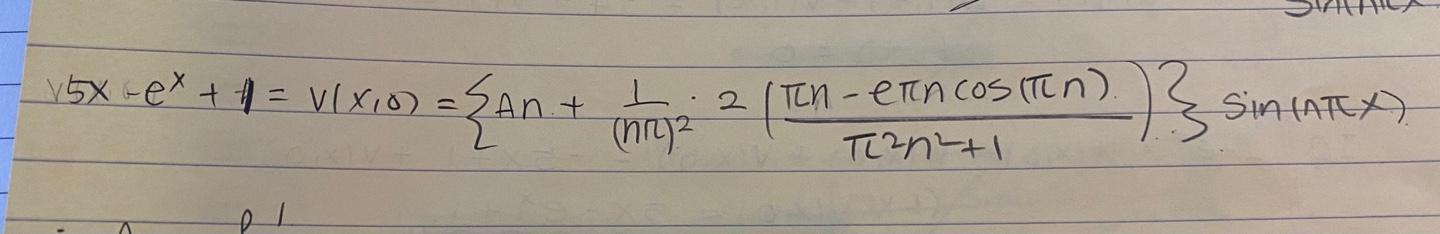 √5x - eˣ + 1 = v(x,0) = {An + 1/(nπ)² · 2 (πn - eπn cos(πn) / π²n²+1)} sin(nπx)